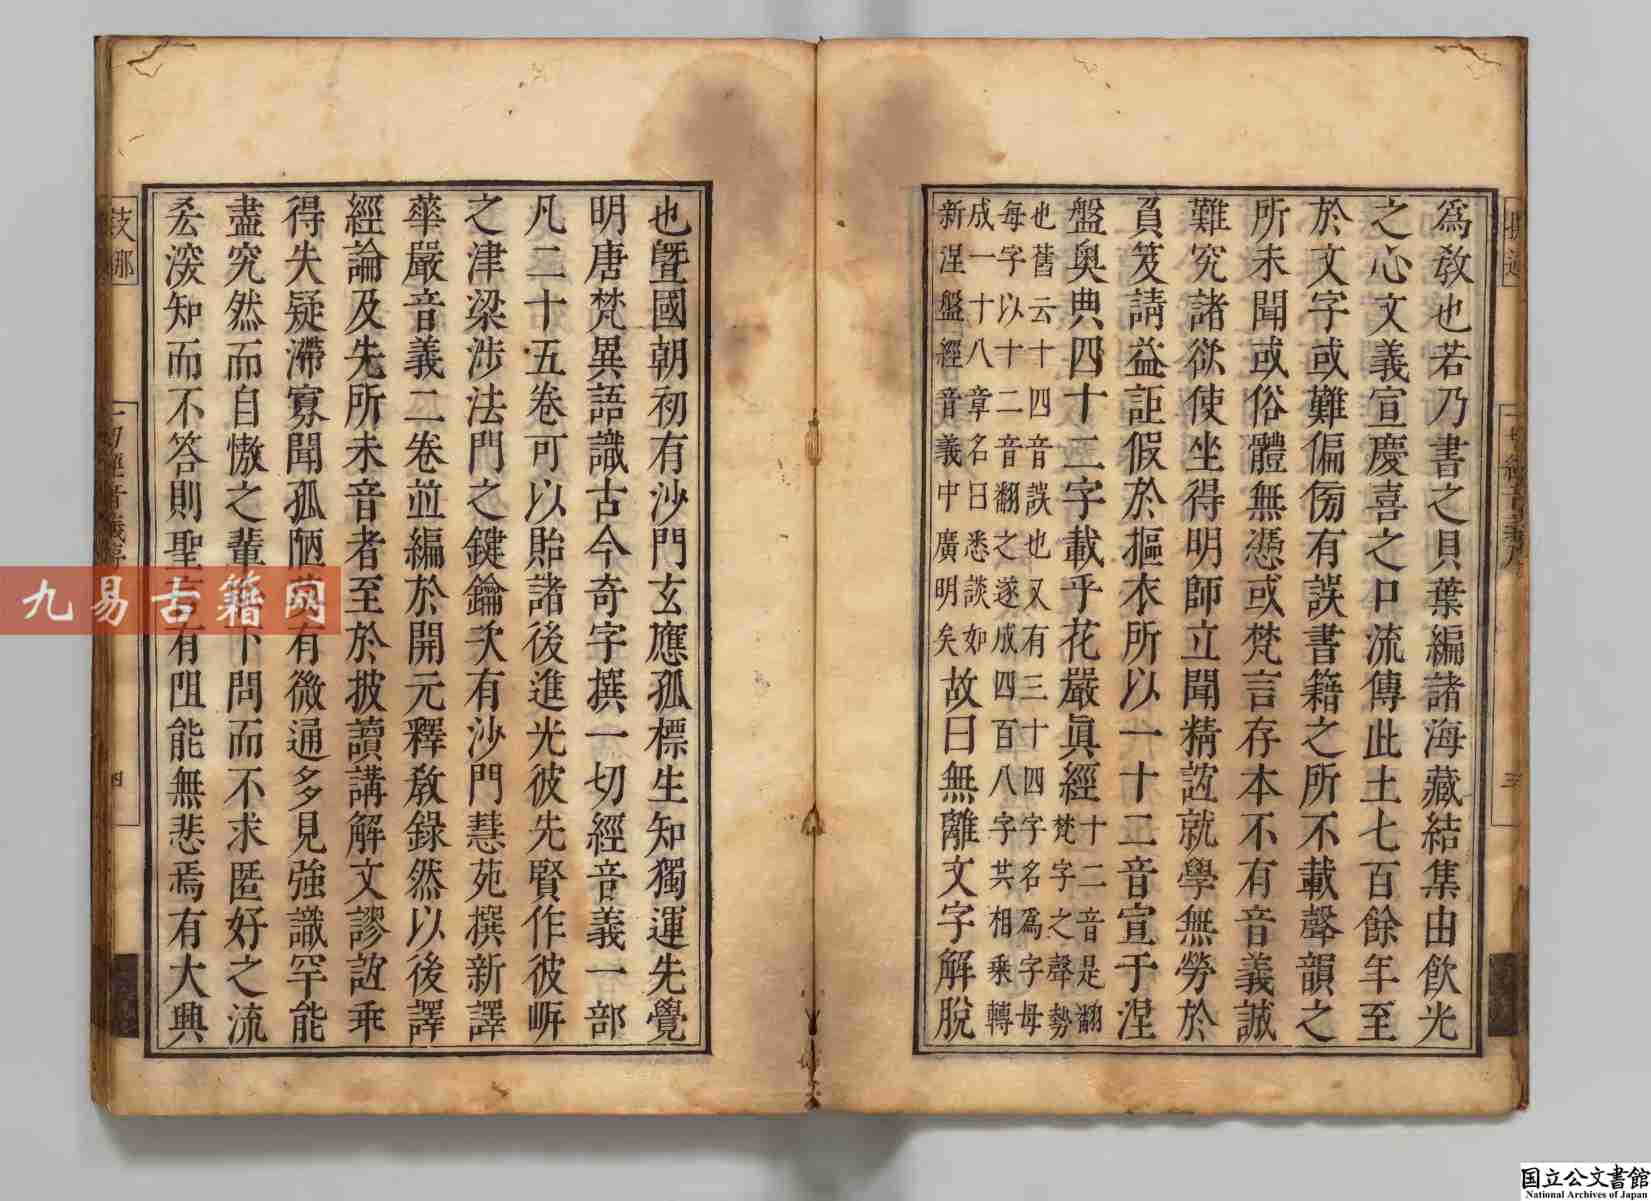 爲教也若乃書之貝葉編諸海藏結集由飲光
之心文義宣慶喜之口流傳此土七百餘年至
於文字或難偏傍有誤書籍之所不載聲韻之
所未聞或俗體無憑或梵言存本不有音義誠
難究諸欲使坐得明師立聞精誼就學無勞於
負笈請益詎假於摳衣所以一十二音宣于涅
盤奧典四十二字載乎花嚴眞經
十二音是翻
梵字之聲勢
也舊云十四音誤也又有三十四字名爲字母
每字以十二音翻之遂成四百八字共相乘轉
成一十八章名曰悉談如
新涅盤經音義中廣明矣
故曰無離文字解脫
三
也曁國朝初有沙門玄應孤標生知獨運先覺
明唐梵異語識古今奇字撰一切經音義一部
凡二十五卷可以貽諸後進光彼先賢作彼㟁
之津梁涉法門之鍵鑰次有沙門慧苑撰新譯
華嚴音義二卷並編於開元釋教錄然以後譯
經論及先所未音者至於披讀講解文謬誼乖
得失疑滯寡聞孤陋有微通多見強識罕能
盡究然而自慠之輩下問而不求匿好之流
深知而不答則聖言有阻能無悲焉有大興
四
九易古籍网
国立公文書館
National Archives of Japan